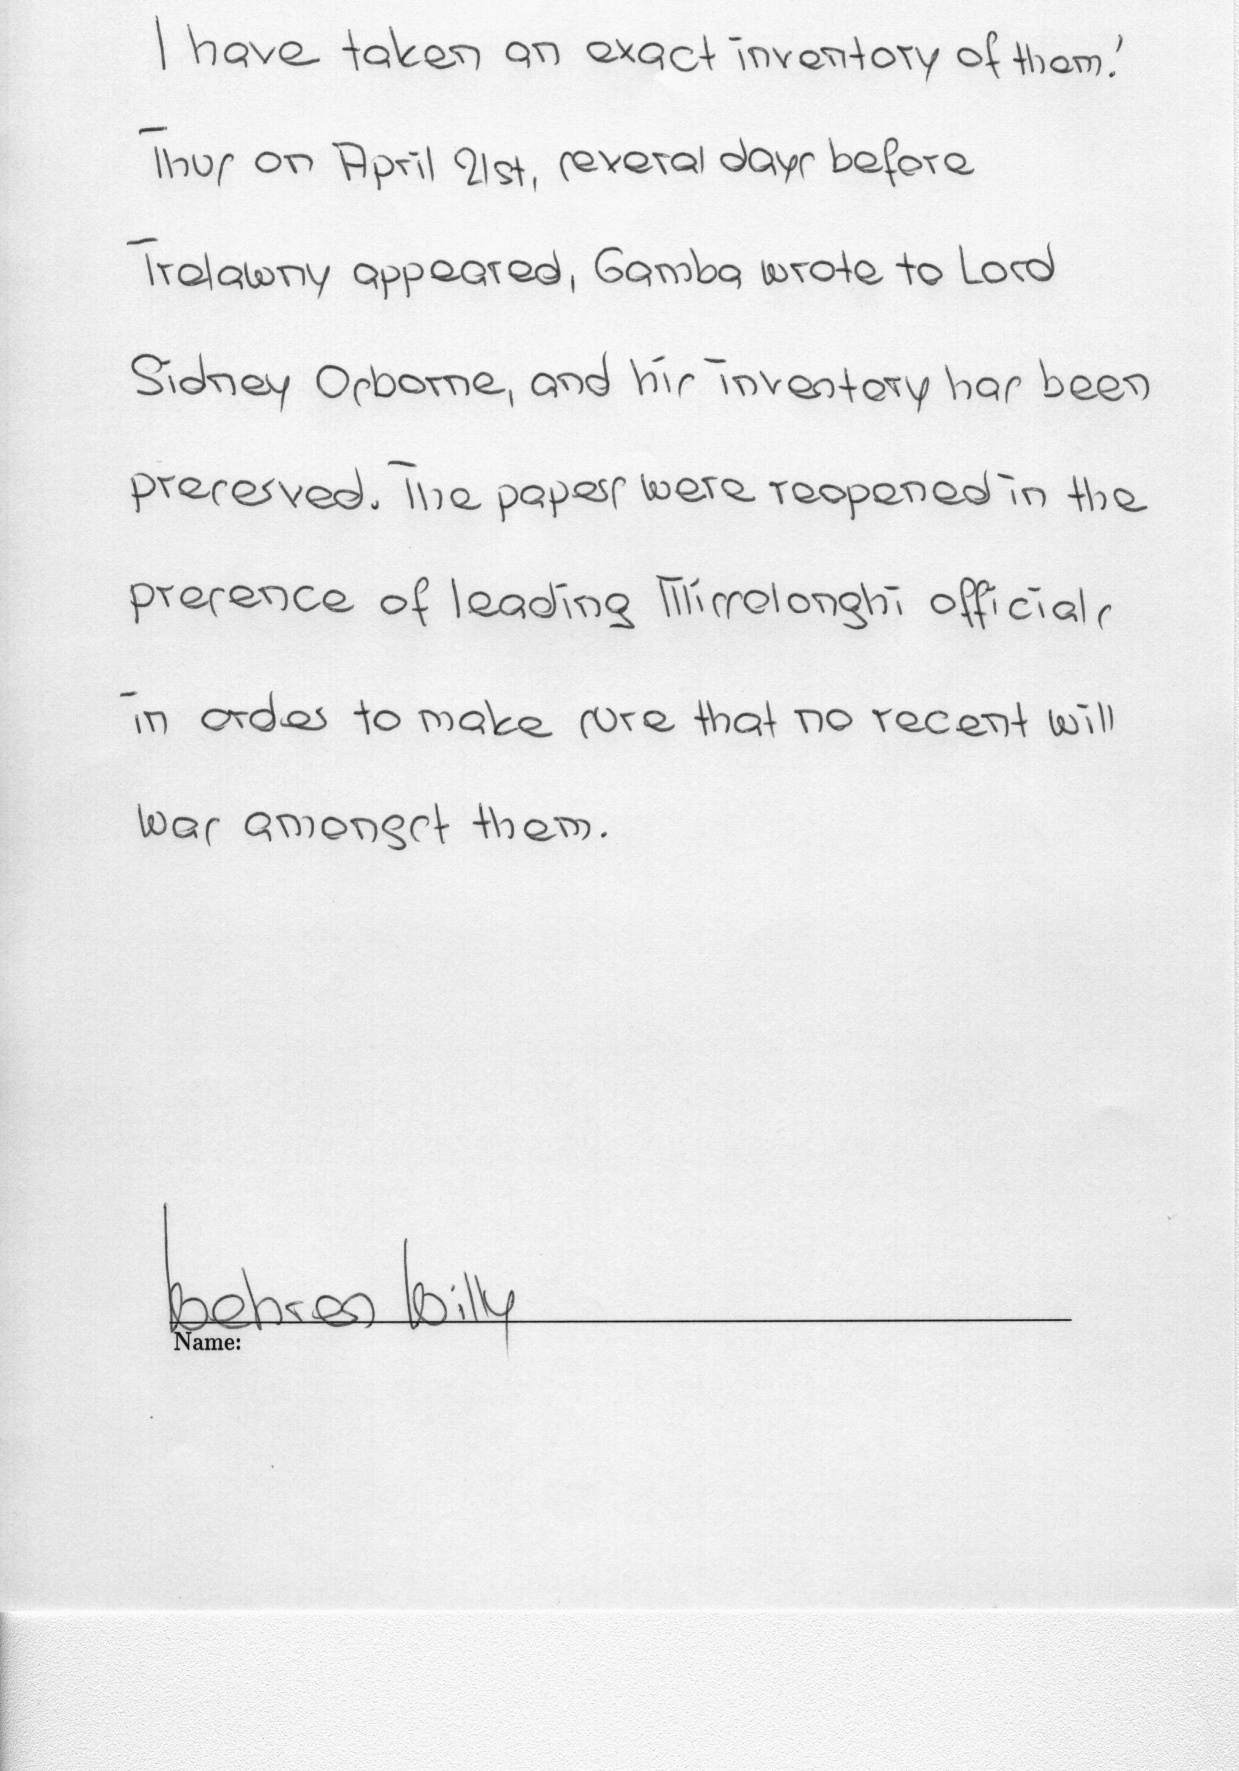 I have taken an exact inventory of them.'
Thus on April 21st, several days before
Trelawny appeared, Gamba wrote to Lord
Sidney Osborne, and his inventory has been
preserved. The papers were reopened in the
presence of leading Missolonghi officials
in order to make sure that no recent will
was amongst them.
Name: